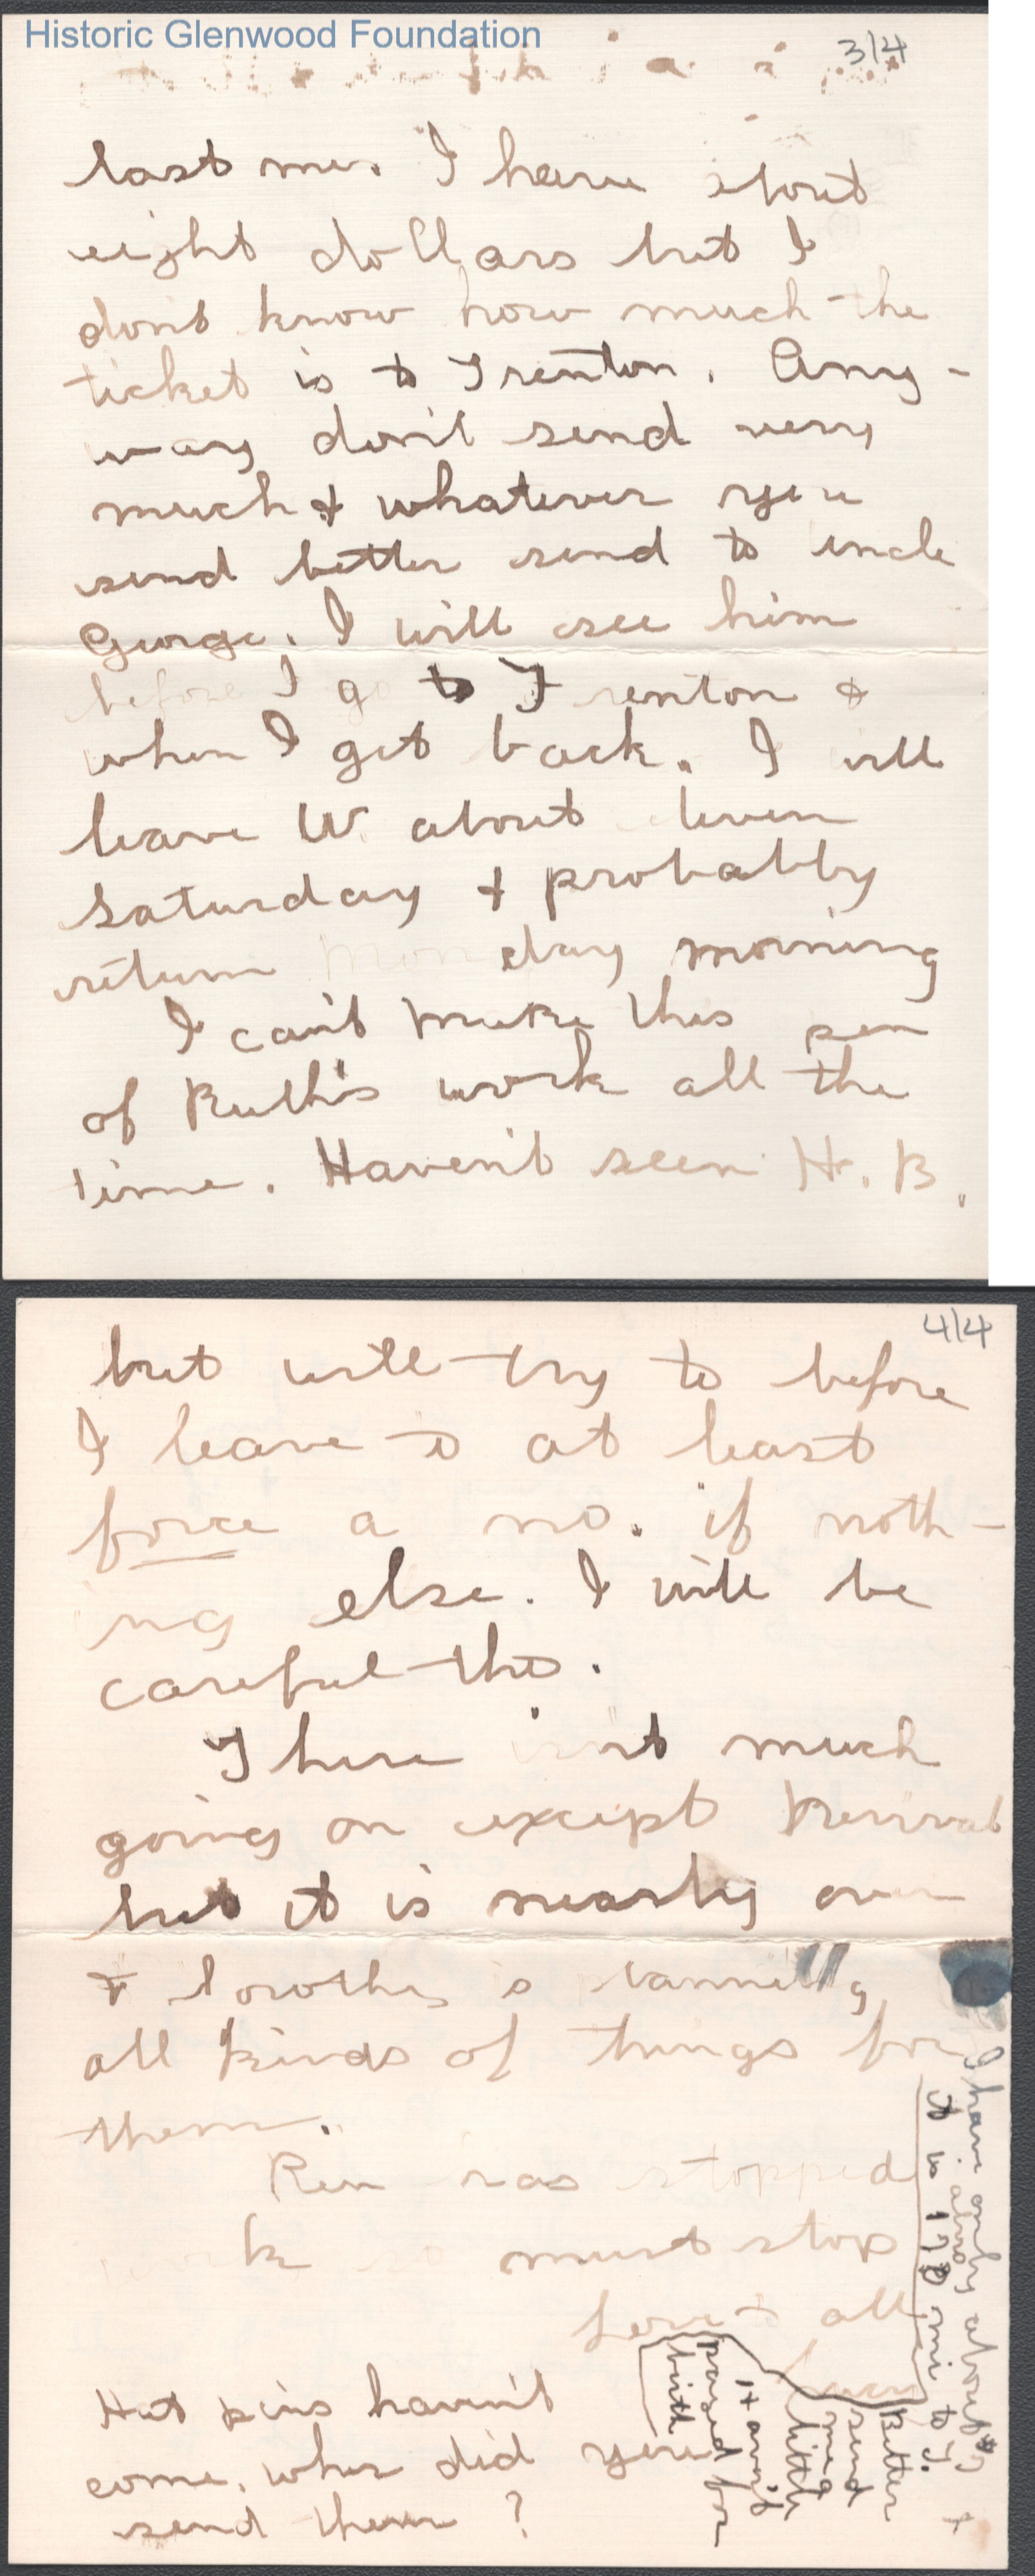 Historic Glenwood Foundation
3/4
last me. I have about
eight dollars but I
don't know how much the
ticket is to Trenton. Any-
way don't send very
much & whatever you
send better send to uncle
George. I will see him
before I go to Trenton &
when I get back. I will
leave W. about leven
Saturday & probably
return Monday morning
I can't make this pen
of Ruth's work all the
time. Haven't seen H. B.
4/4
but will try to before
I leave to at least
force a no. if noth-
ing else. I will be
careful tho.
There isn't much
going on except Revival
but it is nearly over
& Dorothy is
all kinds of things for
them.
Pen has stopped
work so must stop
Love to all
Hat pins haven't
come, when did you
send them?
I have only about $7 &
it is 170 mi to T.
Better
send
me a
little
Haven't
posed for
birth